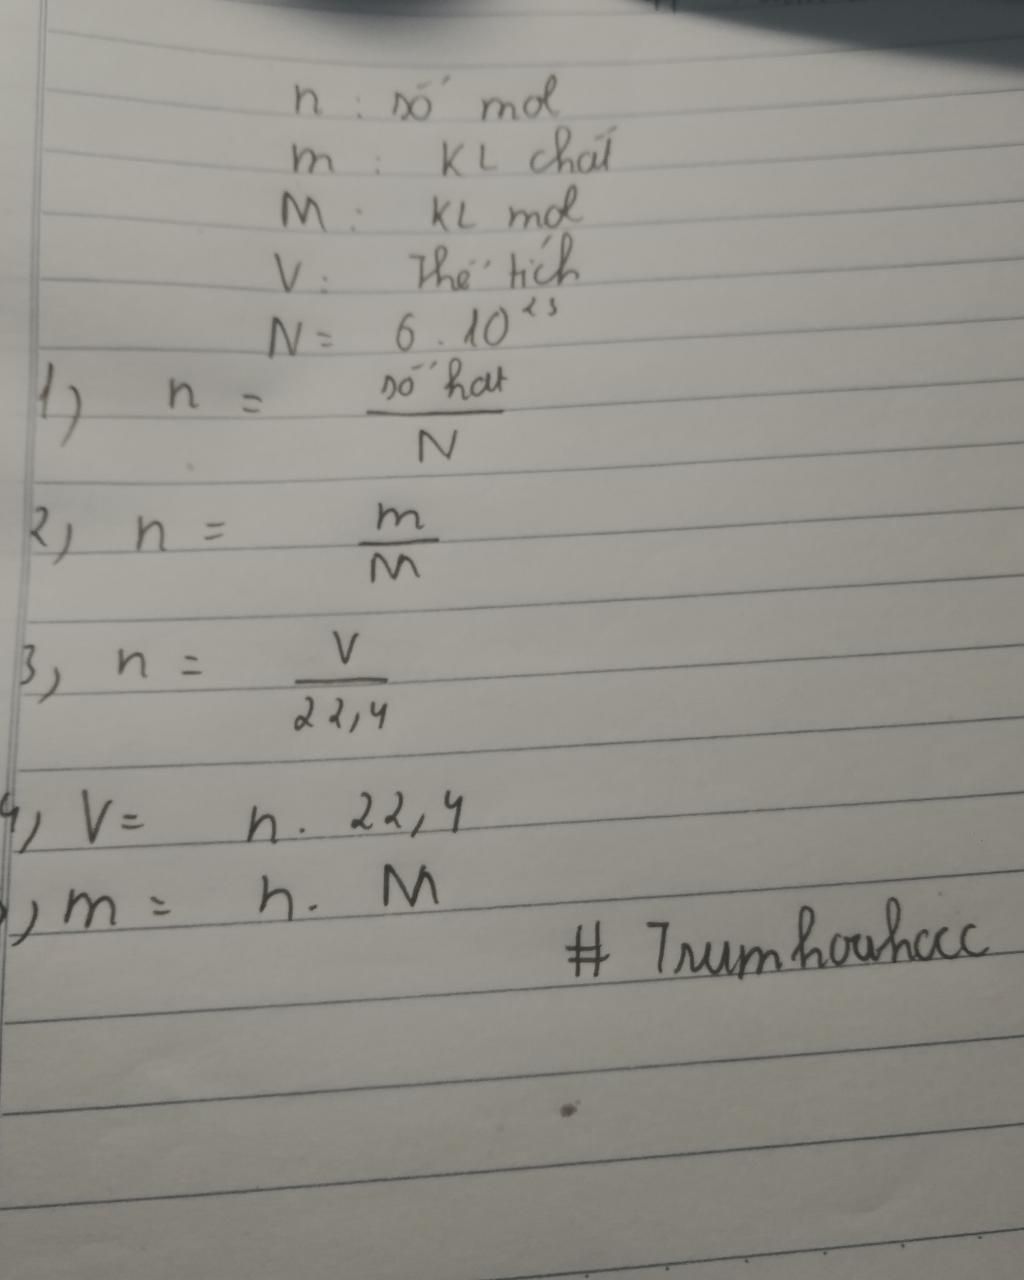 n : số mol
m : KL chất
M : KL mol
V : Thể tích
N = 6 . 10²³
1) n = số hạt / N
2) n = m / M
3) n = V / 22,4
4) V = n . 22,4
) m = n . M
# Trumhoahocc